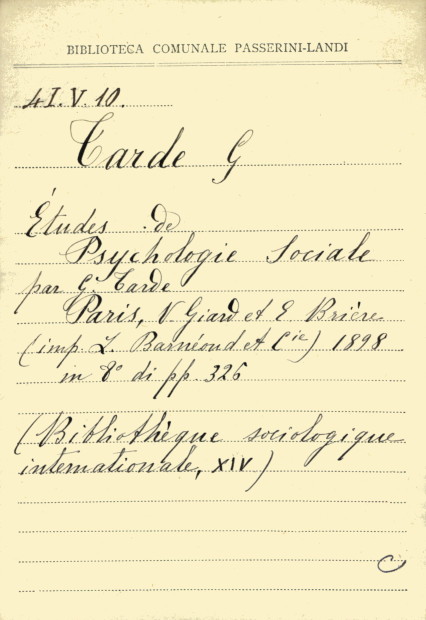 BIBLIOTECA COMUNALE PASSERINI-LANDI
4I.V.10.
Tarde G
Études de
Psychologie Sociale
par G. Tarde
Paris, V Giard et E Brière
(imp. L. Barnéoud et Cie) 1898
in 8° di pp. 326
(Bibliothèque sociologique
internationale, XIV)
C